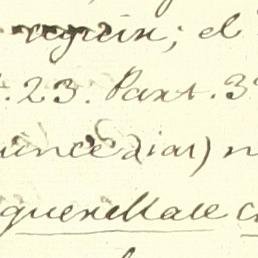 seguir; el
. 23. Part. 3ª
uncedias) n
querellase c